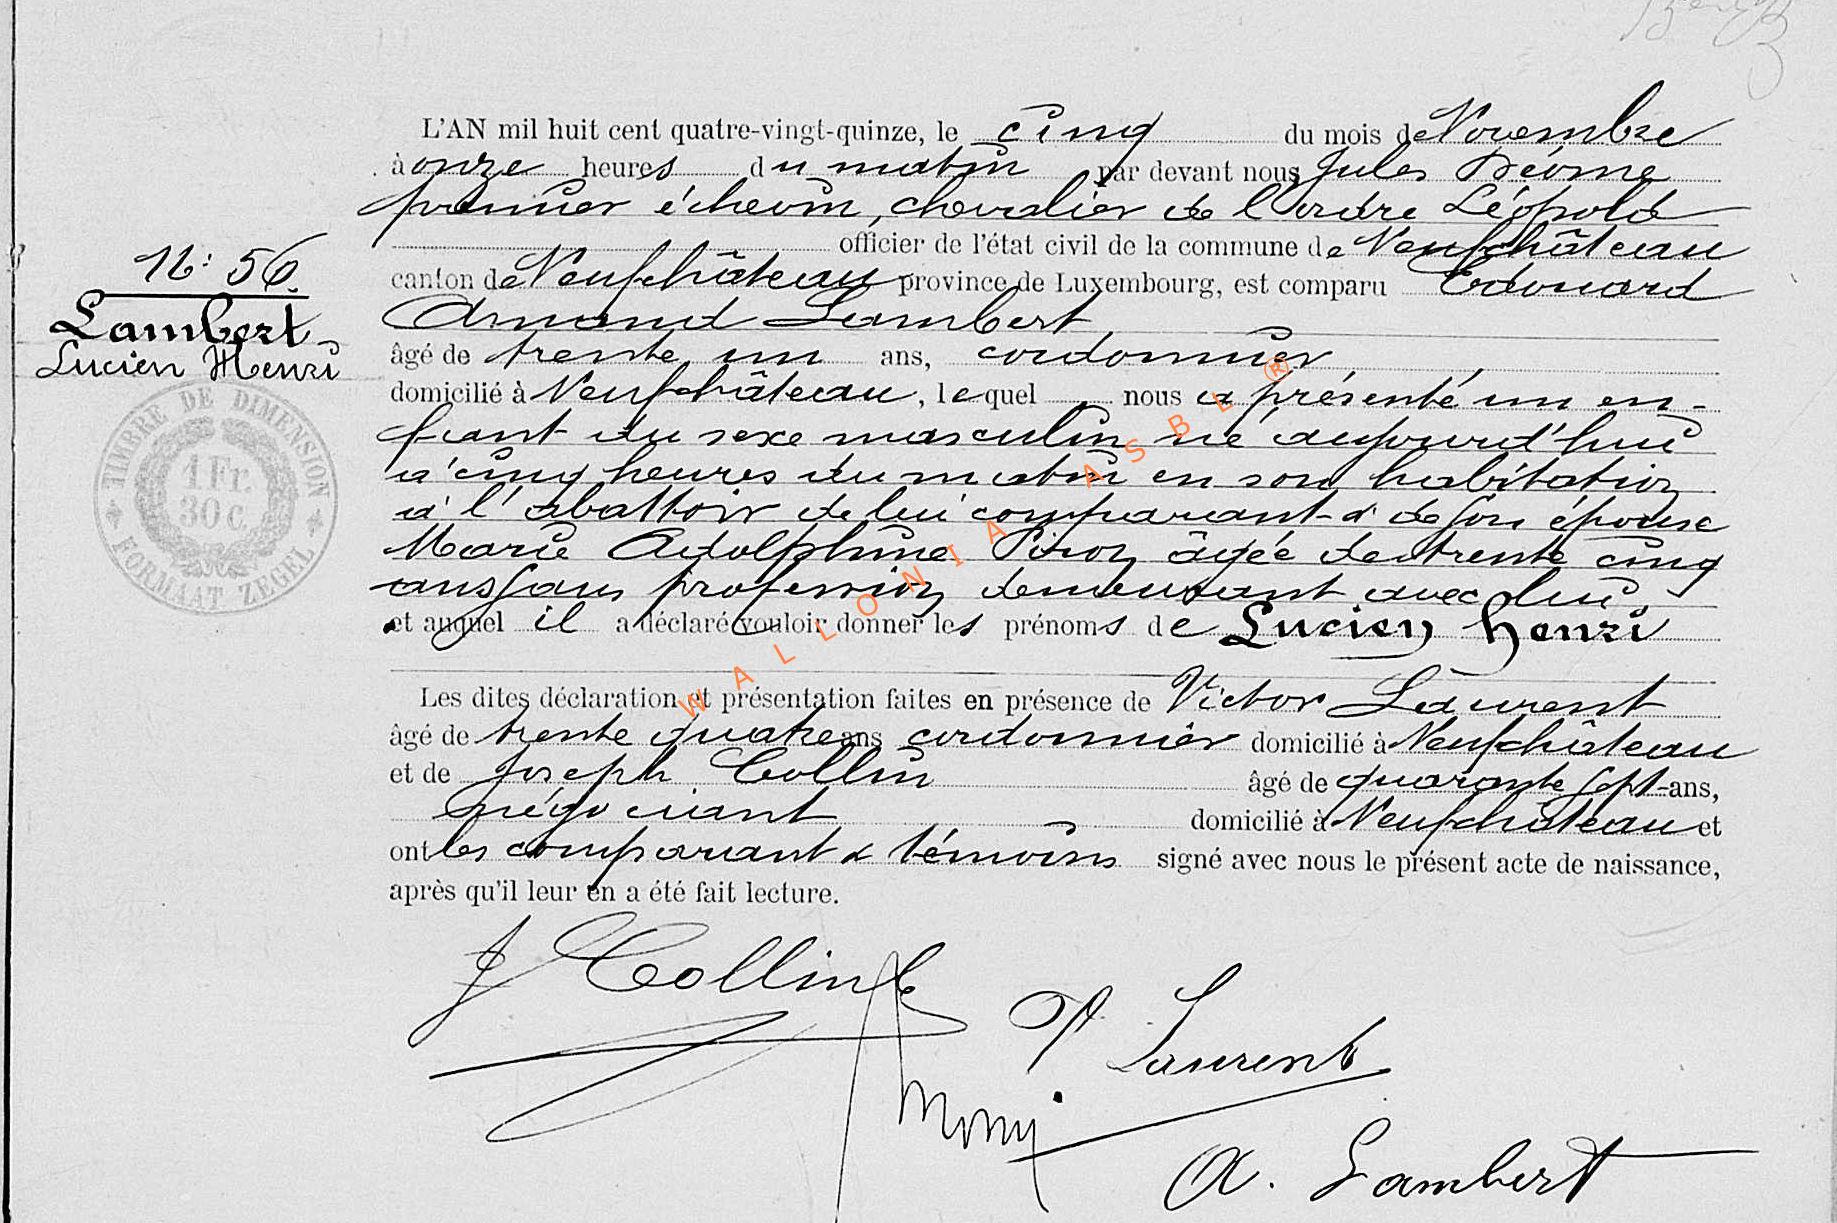 L'AN mil huit cent quatre-vingt-quinze, le cinq du mois de Novembre
à onze heures du matin par devant nous Jules
premier échevin, chevalier de l'ordre Léopold
officier de l'état civil de la commune de Neufchâteau
canton de Neufchâteau province de Luxembourg, est comparu Edouard
Armand Lambert
âgé de trente un ans, cordonnier
domicilié à Neufchâteau, lequel nous a présenté un en-
fant du sexe masculin né aujourd'hui
à cinq heures du matin en son habitation
à l'abattoir de lui comparant & de son épouse
Marie Adolphine Piron âgée de trente cinq
ans sans profession demeurant avec lui
et auquel il a déclaré vouloir donner les prénoms de Lucien Henri
Les dites déclaration et présentation faites en présence de Victor Laurent
âgé de trente quatre ans cordonnier domicilié à Neufchâteau
et de Joseph Collin âgé de quarante sept ans,
négociant domicilié à Neufchâteau et
ont les comparant & témoins signé avec nous le présent acte de naissance,
après qu'il leur en a été fait lecture.
N: 56
Lambert
Lucien Henri
TIMBRE DE DIMENSION
1 Fr.
30 c.
FORMAAT ZEGEL
WALLONIA ASBL ®
J Collin
V. Laurent
A. Lambert